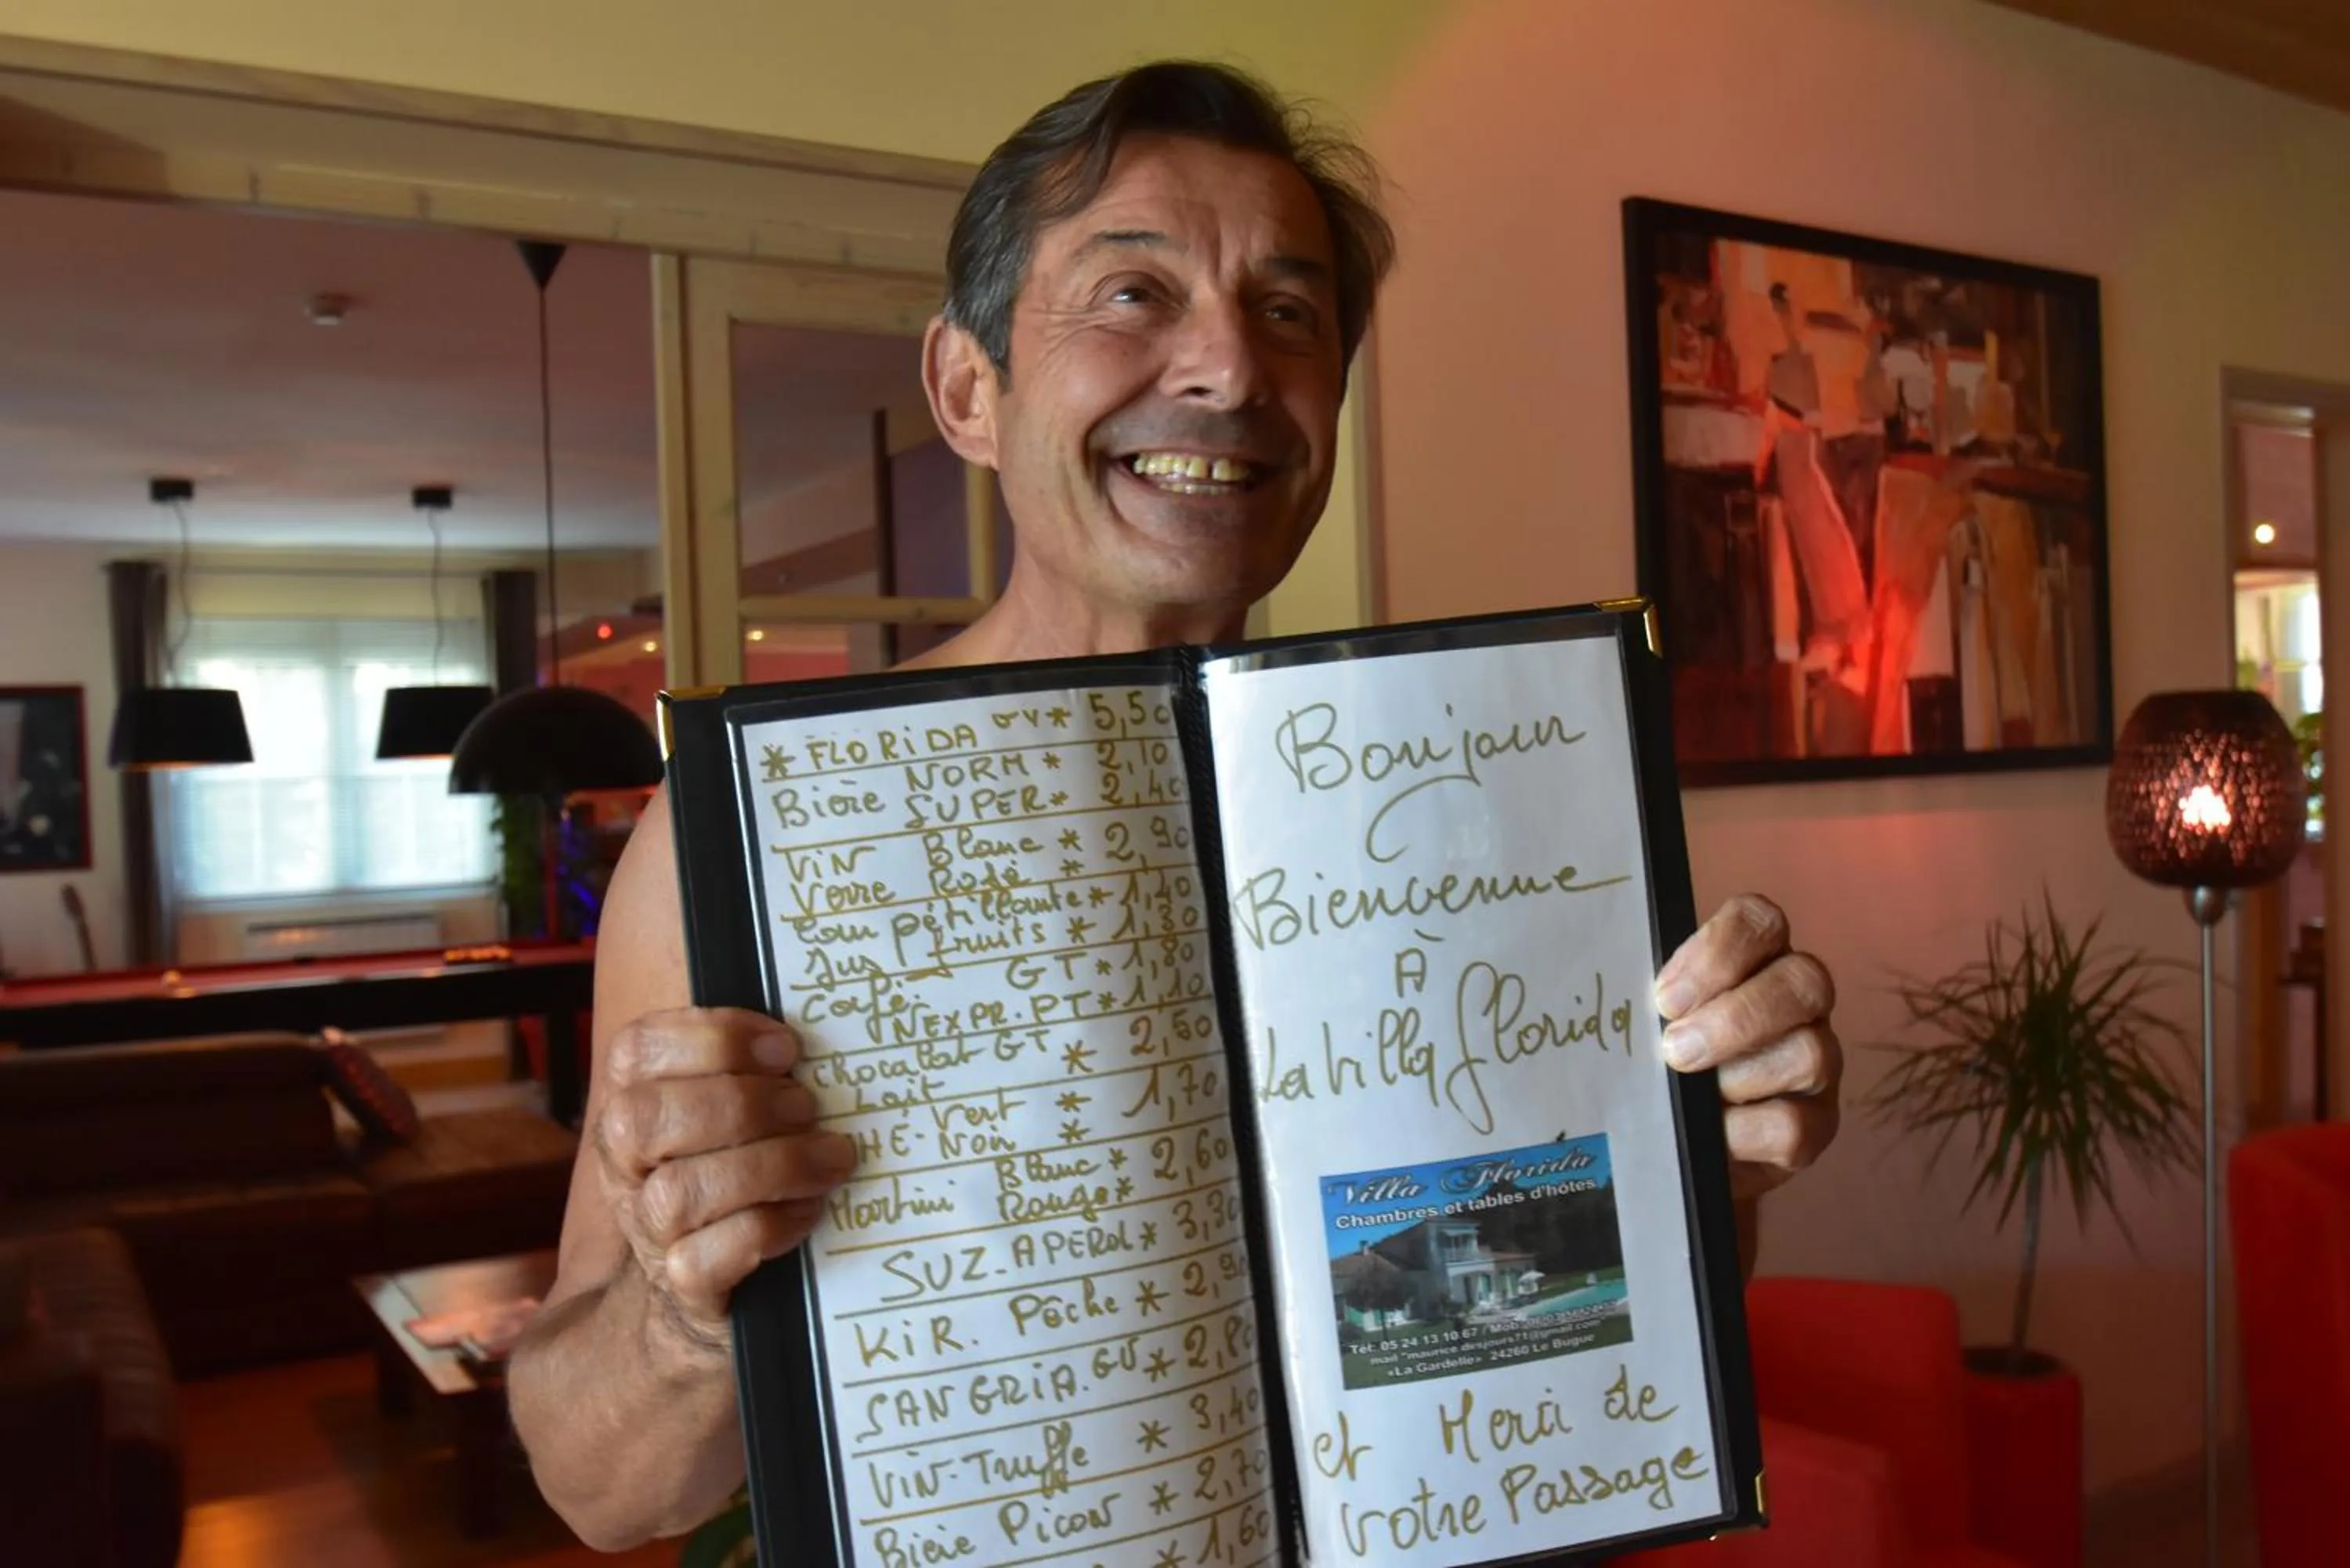 * FLORiDA GV * 5,50
Bière NORM * 2,10
SUPER * 2,40
ViN Blanc * 2,90
Verre Rosé *
eau pétillante * 1,40
Jus fruits * 1,30
GT * 1,80
Café.
NEXPR. PT * 1,10
chocolat GT * 2,50
Lait
Vert * 1,70
HÉ - Noir *
Blanc * 2,60
Martini Rouge *
SUZ. APEROL * 3,30
KiR. Pêche * 2,90
SANGRiA. GV * 2,80
ViN-Truffe * 3,40
Bière Picon * 2,70
* 1,60
Bonjour
Bienvenue
À
La Villa Florida
Villa Florida
Chambres et tables d'hôtes
Tél: 05 24 13 10 67 / Mob:
mail "maurice.desjours71@gmail.com"
«La Gardelle» 24260 Le Bugue
et Merci de
votre Passage